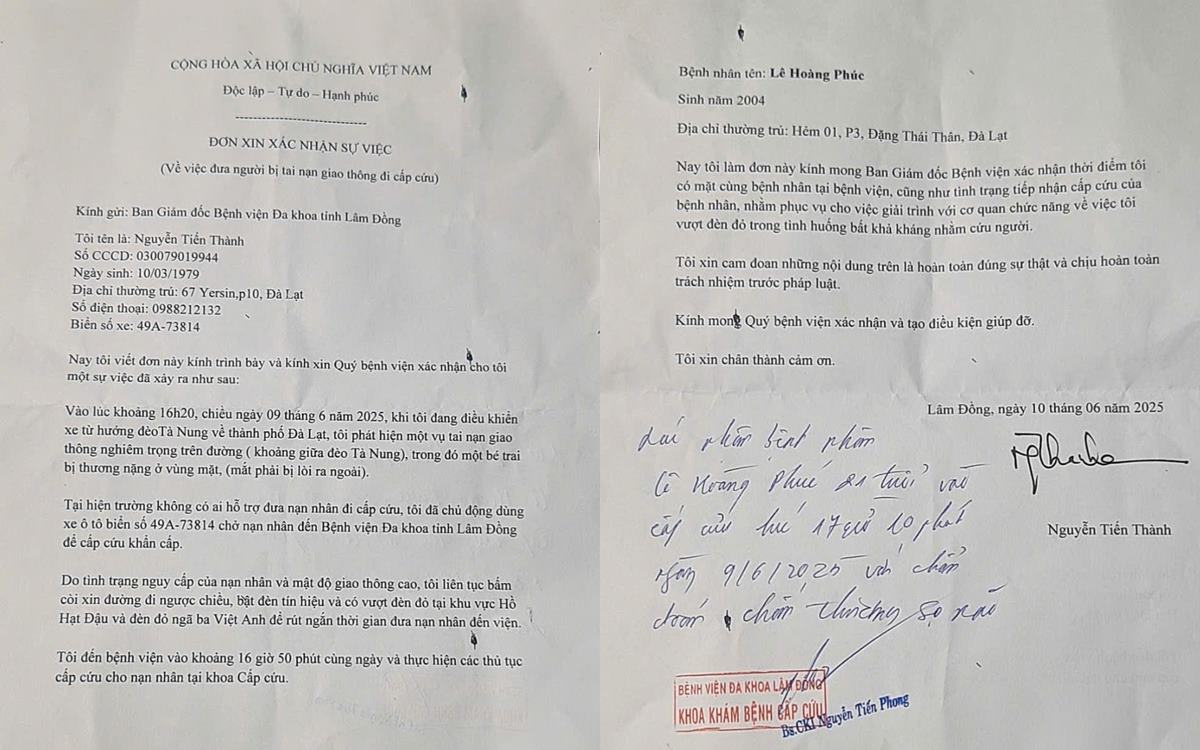 CỘNG HÒA XÃ HỘI CHỦ NGHĨA VIỆT NAM
Độc lập – Tự do – Hạnh phúc
ĐƠN XIN XÁC NHẬN SỰ VIỆC
(Về việc đưa người bị tai nạn giao thông đi cấp cứu)
Kính gửi: Ban Giám đốc Bệnh viện Đa khoa tỉnh Lâm Đồng
Tôi tên là: Nguyễn Tiến Thành
Số CCCD: 030079019944
Ngày sinh: 10/03/1979
Địa chỉ thường trú: 67 Yersin,p10, Đà Lạt
Số điện thoại: 0988212132
Biển số xe: 49A-73814
Nay tôi viết đơn này kính trình bày và kính xin Quý bệnh viện xác nhận cho tôi
một sự việc đã xảy ra như sau:
Vào lúc khoảng 16h20, chiều ngày 09 tháng 6 năm 2025, khi tôi đang điều khiển
xe từ hướng đèoTà Nung về thành phố Đà Lạt, tôi phát hiện một vụ tai nạn giao
thông nghiêm trọng trên đường ( khoảng giữa đèo Tà Nung), trong đó một bé trai
bị thương nặng ở vùng mặt, (mắt phải bị lòi ra ngoài).
Tại hiện trường không có ai hỗ trợ đưa nạn nhân đi cấp cứu, tôi đã chủ động dùng
xe ô tô biển số 49A-73814 chở nạn nhân đến Bệnh viện Đa khoa tỉnh Lâm Đồng
để cấp cứu khẩn cấp.
Do tình trạng nguy cấp của nạn nhân và mật độ giao thông cao, tôi liên tục bấm
còi xin đường đi ngược chiều, bật đèn tín hiệu và có vượt đèn đỏ tại khu vực Hồ
Hạt Đậu và đèn đỏ ngã ba Việt Anh để rút ngắn thời gian đưa nạn nhân đến viện.
Tôi đến bệnh viện vào khoảng 16 giờ 50 phút cùng ngày và thực hiện các thủ tục
cấp cứu cho nạn nhân tại khoa Cấp cứu.
Bệnh nhân tên: Lê Hoàng Phúc
Sinh năm 2004
Địa chỉ thường trú: Hẻm 01, P3, Đặng Thái Thân, Đà Lạt
Nay tôi làm đơn này kính mong Ban Giám đốc Bệnh viện xác nhận thời điểm tôi
có mặt cùng bệnh nhân tại bệnh viện, cũng như tình trạng tiếp nhận cấp cứu của
bệnh nhân, nhằm phục vụ cho việc giải trình với cơ quan chức năng về việc tôi
vượt đèn đỏ trong tình huống bất khả kháng nhằm cứu người.
Tôi xin cam đoan những nội dung trên là hoàn toàn đúng sự thật và chịu hoàn toàn
trách nhiệm trước pháp luật.
Kính mong Quý bệnh viện xác nhận và tạo điều kiện giúp đỡ.
Tôi xin chân thành cảm ơn.
Lâm Đồng, ngày 10 tháng 06 năm 2025
Nguyễn Tiến Thành
nhận bệnh nhân
Lê Hoàng Phúc 21 tuổi vào
cấp cứu lúc 17 giờ 10 phút
ngày 9/6/2025 với chẩn
đoán chấn thương sọ não
BỆNH VIỆN ĐA KHOA LÂM ĐỒNG
KHOA KHÁM BỆNH CẤP CỨU
Bs.CKI Nguyễn Tiến Phong